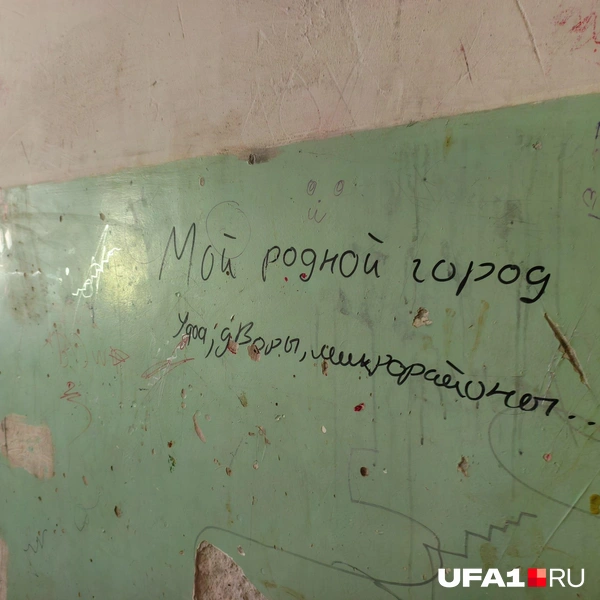 Мой родной город
Уфа, дворы, микрорайоны...
UFA1.RU